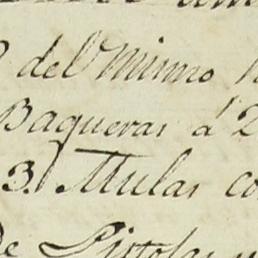 del Mismo
Baqueras á 2
3. Mulas co
de Pistolas